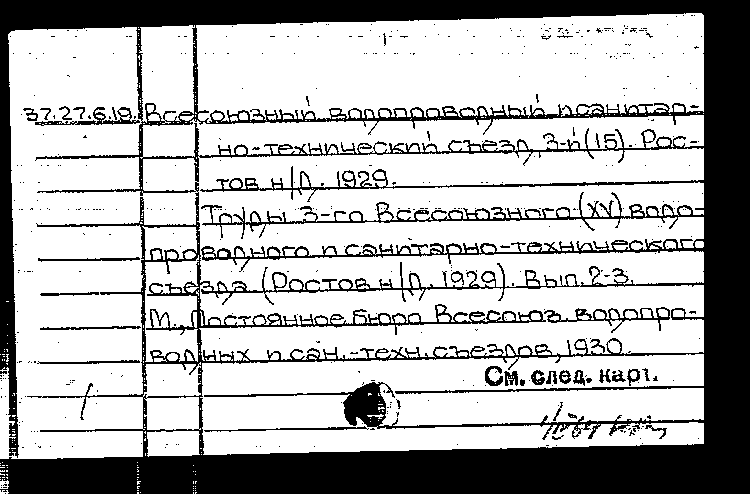 37.27.6.19. Всесоюзный водопроводный и санитар-
но-технический съезд, 3-й (15). Рос-
тов н/Д. 1929.
Труды 3-го Всесоюзного (XV) водо-
проводного и санитарно-технического
съезда (Ростов н/Д, 1929). Вып. 2-3.
М., Постоянное бюро Всесоюз. водопро-
водных и сан.-техн. съездов, 1930.
См. след. карт.